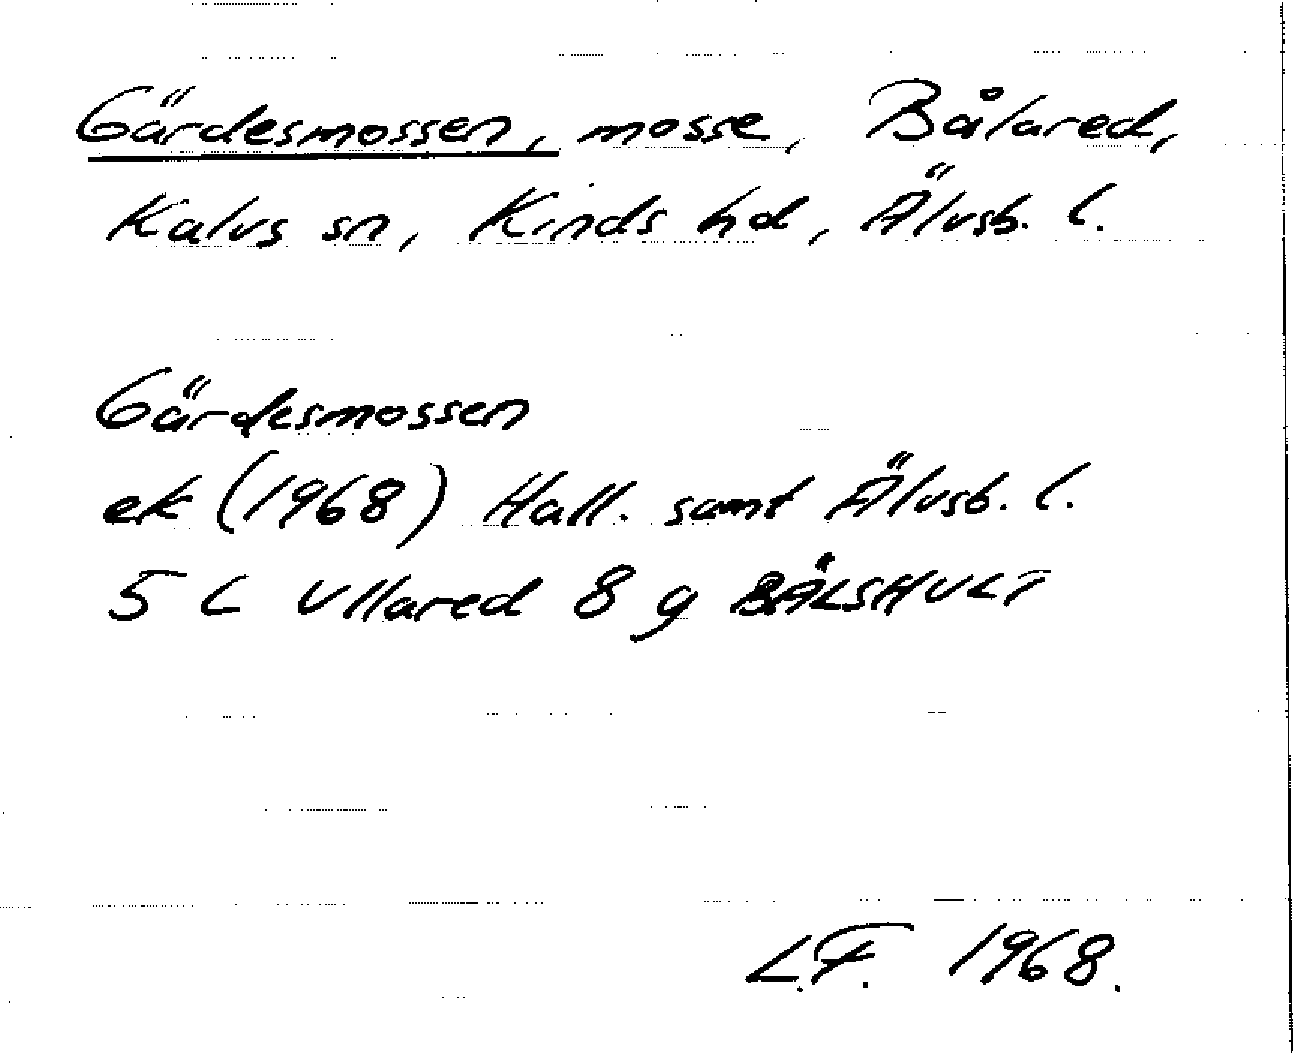 Gärdesmossen, mosse, Bålared,
Kalvs sn, Kinds hd, Älvsb. l.
Gärdesmossen
ek (1968) Hall. samt Älvsb. l.
5 C Ullared 8 g BÅLSHULT
L.F. 1968.